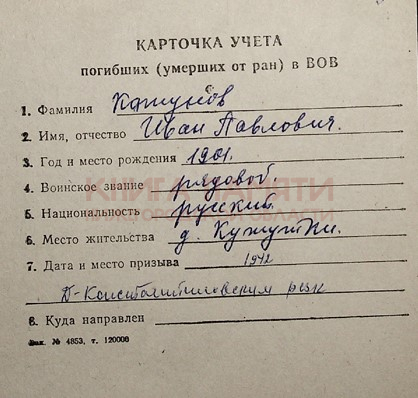 КАРТОЧКА УЧЕТА
погибших (умерших от ран) в ВОВ
1. Фамилия Катунов
2. Имя, отчество Иван Павлович.
3. Год и место рождения 1901.
4. Воинское звание рядовой.
КНИГА ПАМЯТИ
5. Национальность русский.
НИЖЕГОРОДСКОЙ ОБЛАСТИ
6. Место жительства д.
7. Дата и место призыва 1942
рвк
8. Куда направлен
Зак. № 4853, т. 120000